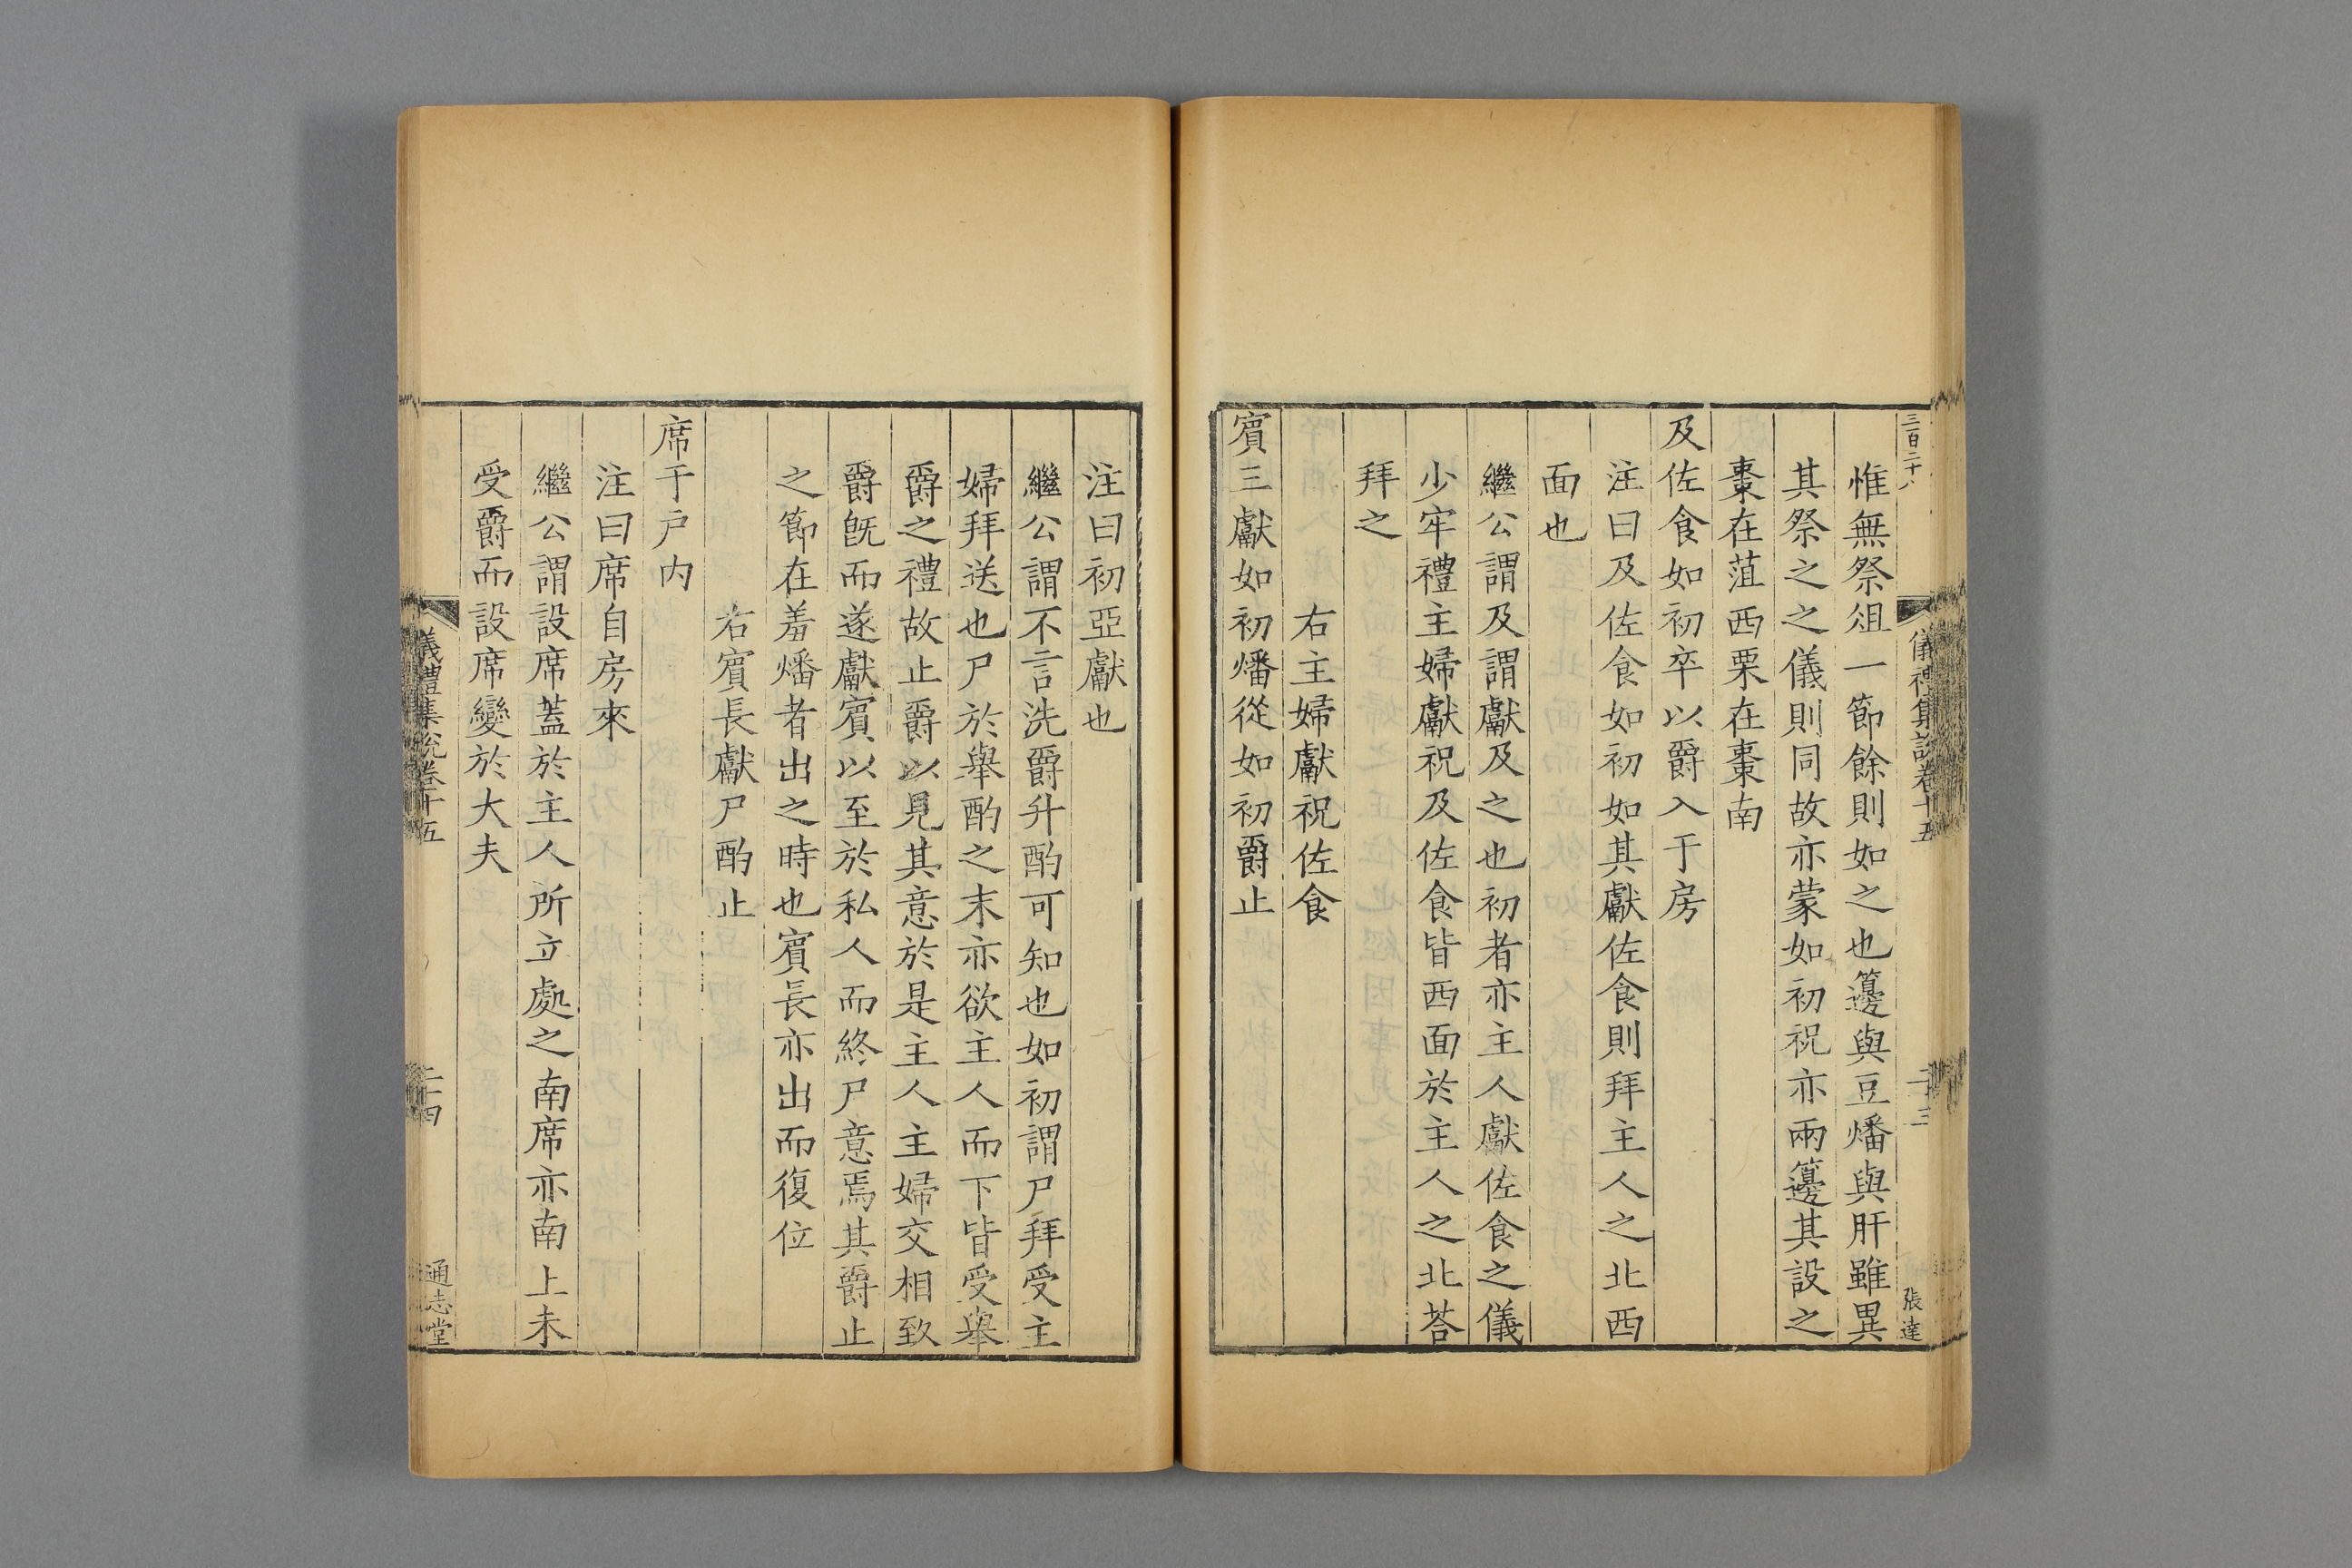 三百二十八
儀禮集說卷十五
二十三
張達
惟無祭俎一節餘則如之也籩與豆燔與肝雖異
其祭之之儀則同故亦蒙如初祝亦兩籩其設之
棗在菹西栗在棗南
及佐食如初卒以爵入于房
注曰及佐食如初如其獻佐食則拜主人之北西
面也
繼公謂及謂獻及之也初者亦主人獻佐食之儀
少牢禮主婦獻祝及佐食皆西面於主人之北荅
拜之
右主婦獻祝佐食
賓三獻如初燔從如初爵止
注曰初亞獻也
繼公謂不言洗爵升酌可知也如初謂尸拜受主
婦拜送也尸於舉酌之末亦欲主人而下皆受舉
爵之禮故止爵以見其意於是主人主婦交相致
爵旣而遂獻賓以至於私人而終尸意焉其爵止
之節在羞燔者出之時也賓長亦出而復位
右賓長獻尸酌止
席于戶內
注曰席自房來
繼公謂設席蓋於主人所立處之南席亦南上未
受爵而設席變於大夫
儀禮集說卷十五
二十四
通志堂